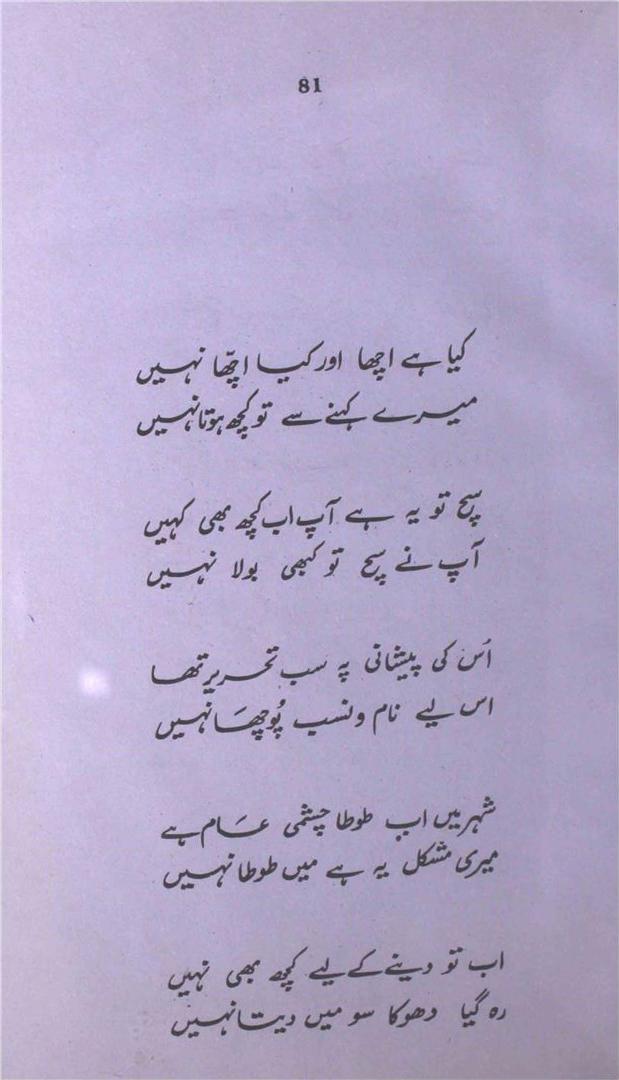 81
کیا ہے اچھا اور کیا اچّھا نہیں
میرے کہنے سے تو کچھ ہوتا نہیں
سچ تو یہ ہے آپ اب کچھ بھی کہیں
آپ نے سچ تو کبھی بولا نہیں
اُس کی پیشانی پہ سب تحریر تھا
اس لیے نام و نسب پُوچھَا نہیں
شہر میں اب طوطا چشمی عَام ہے
میری مشکل یہ ہے میں طوطا نہیں
اب تو دینے کے لیے کچھ بھی نہیں
رہ گیا دھوکا سو میں دیتا نہیں